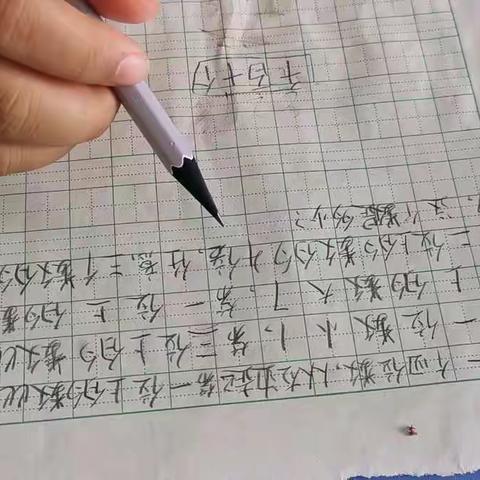 一个四位数,从左边起第一位上的数比
一位数小1,第三位上的数比
上的数大7,第一位上的数
三位上的数的
这个数是多少?
千百十个